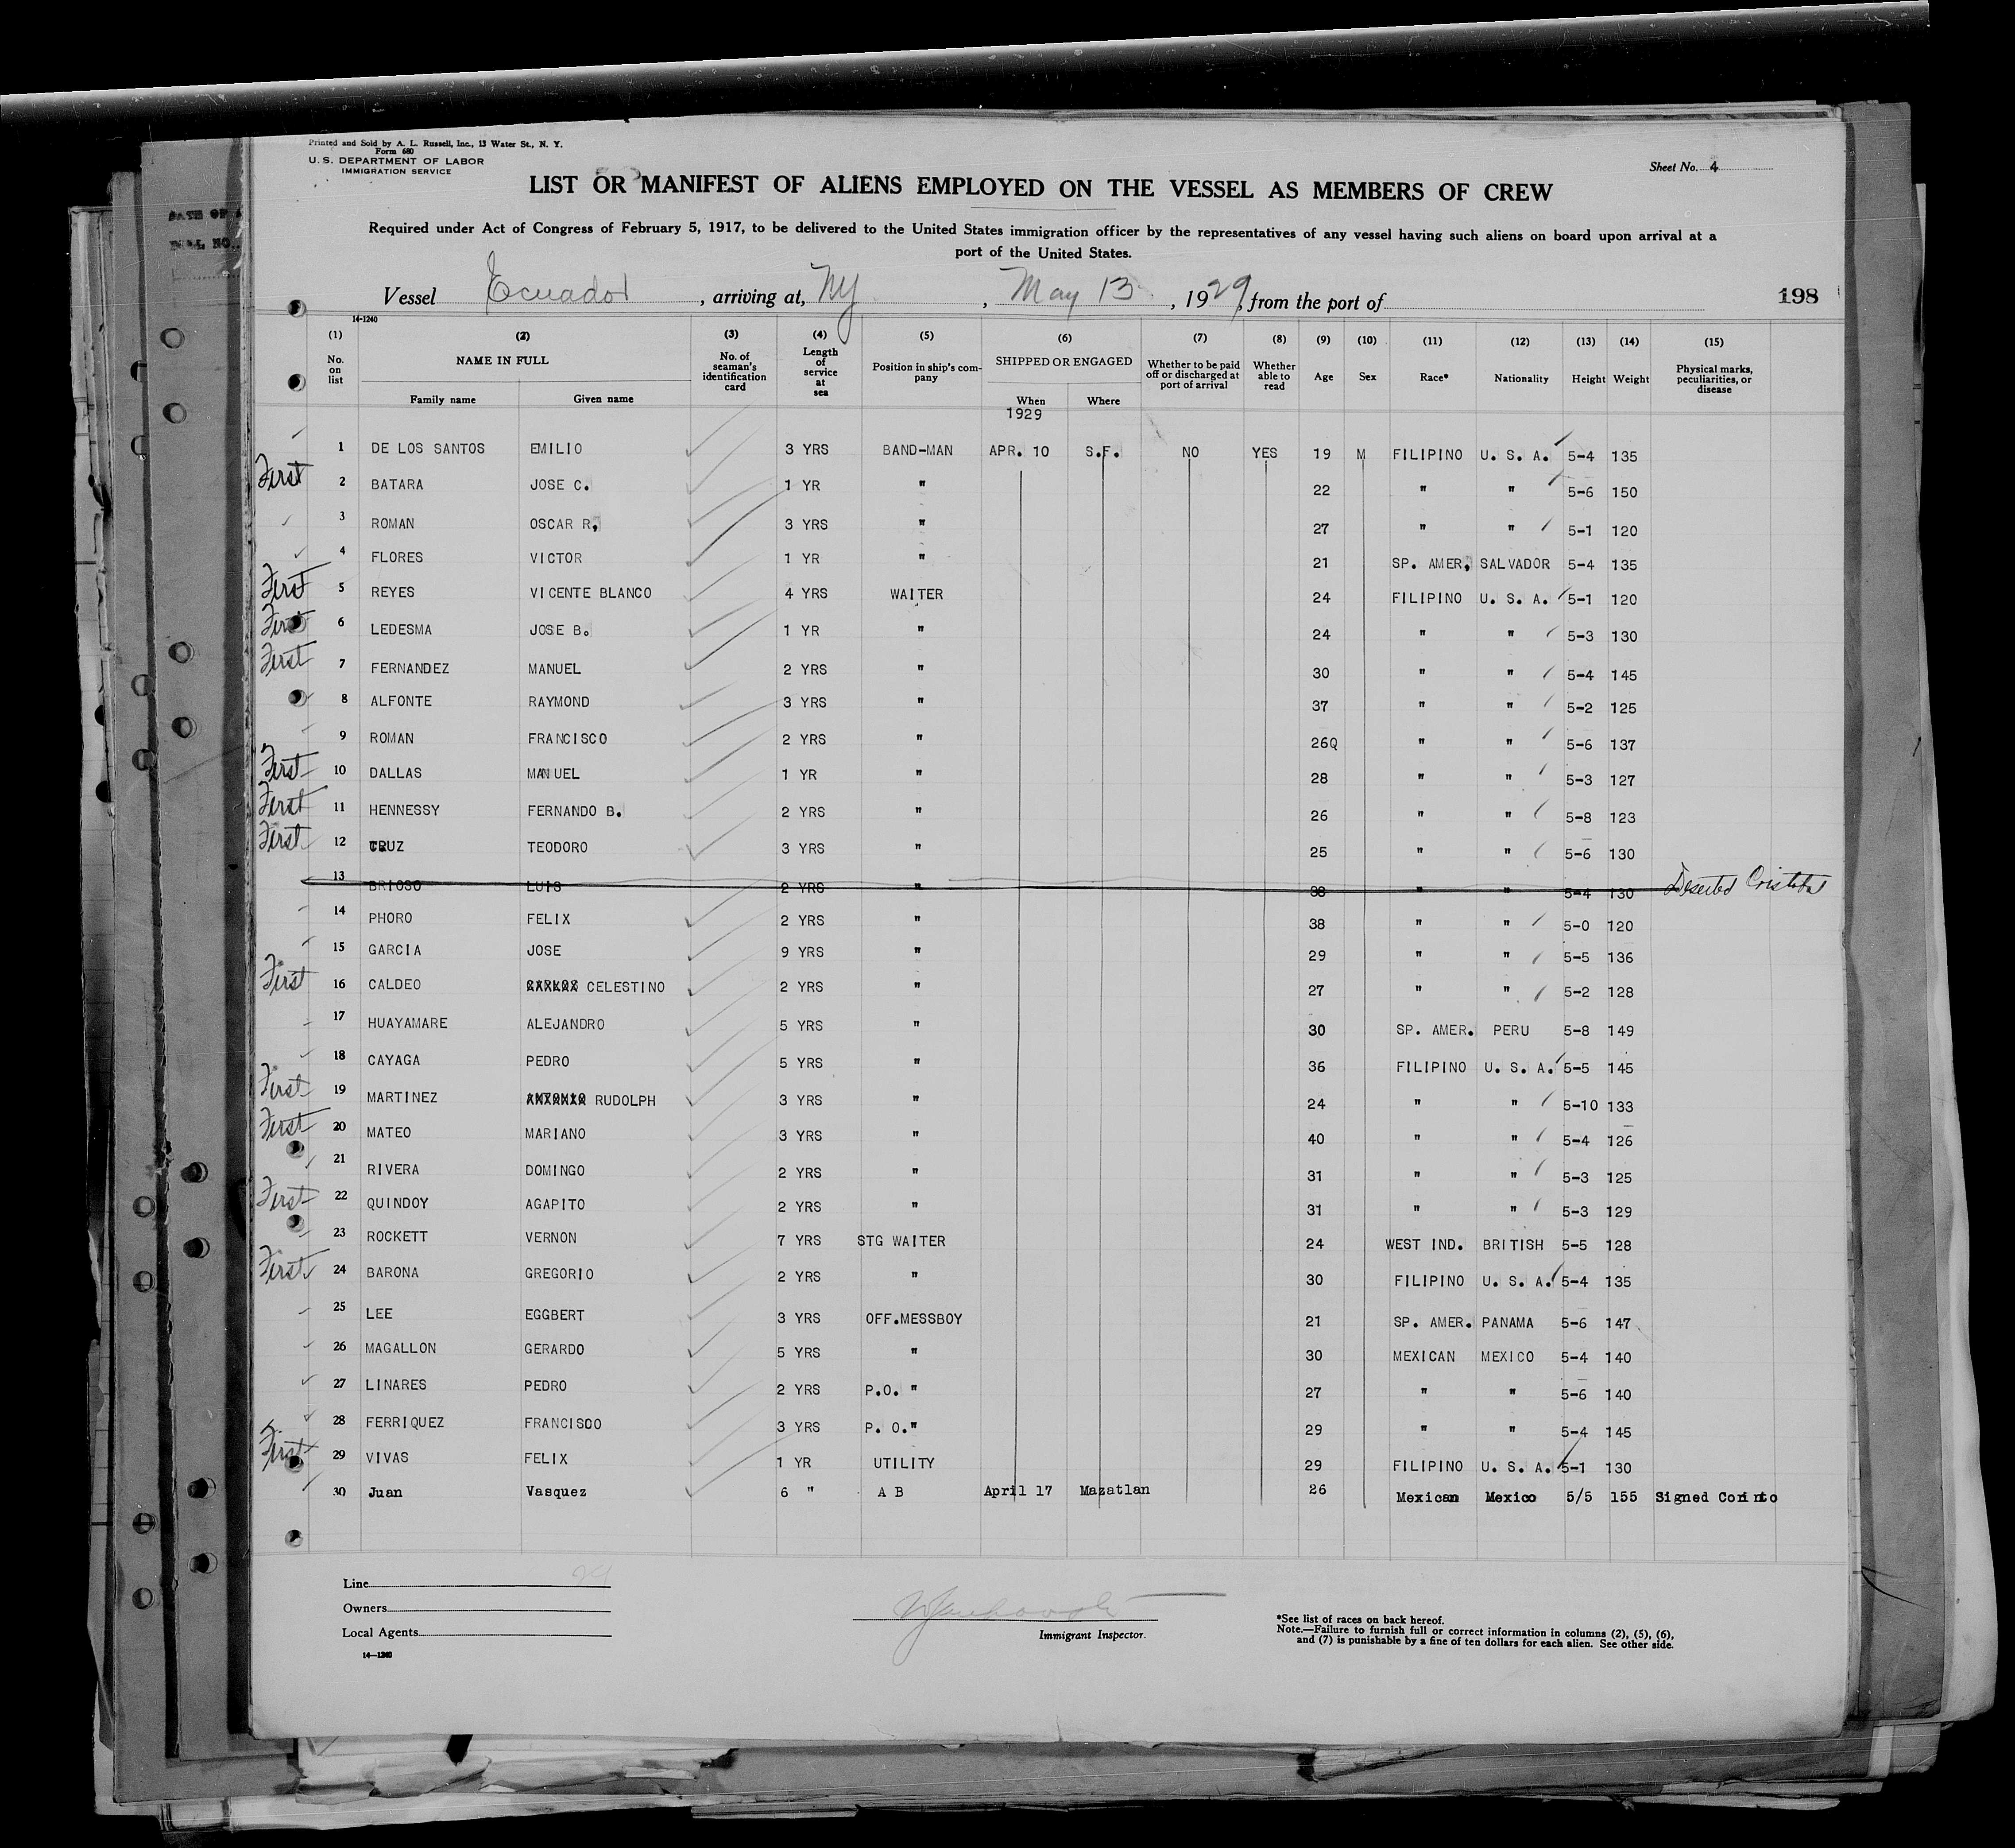 Printed and Sold by A. L. Russell, Inc., 13 Water St., N. Y.
Form 680
U. S. DEPARTMENT OF LABOR
IMMIGRATION SERVICE
Sheet No. 4
LIST OR MANIFEST OF ALIENS EMPLOYED ON THE VESSEL AS MEMBERS OF CREW
Required under Act of Congress of February 5, 1917, to be delivered to the United States immigration officer by the representatives of any vessel having such aliens on board upon arrival at a
port of the United States.
Vessel Ecuador, arriving at, NY, May 13, 1929, from the port of
198
14-1240
(1) (2) (3) (4) (5) (6) (7) (8) (9) (10) (11) (12) (13) (14) (15)
No. on list NAME IN FULL Family name Given name No. of seaman's identification card Length of service at sea Position in ship's company SHIPPED OR ENGAGED When Where Whether to be paid off or discharged at port of arrival Whether able to read Age Sex Race* Nationality Height Weight Physical marks, peculiarities, or disease
1929
1 DE LOS SANTOS EMILIO 3 YRS BAND-MAN APR. 10 S.F. NO YES 19 M FILIPINO U. S. A. 5-4 135
First 2 BATARA JOSE C. 1 YR " 22 " " 5-6 150
3 ROMAN OSCAR R, 3 YRS " 27 " " 5-1 120
4 FLORES VICTOR 1 YR " 21 SP. AMER, SALVADOR 5-4 135
First 5 REYES VICENTE BLANCO 4 YRS WAITER 24 FILIPINO U. S. A. 5-1 120
First 6 LEDESMA JOSE B. 1 YR " 24 " " 5-3 130
First 7 FERNANDEZ MANUEL 2 YRS " 30 " " 5-4 145
8 ALFONTE RAYMOND 3 YRS " 37 " " 5-2 125
9 ROMAN FRANCISCO 2 YRS " 26Q " " 5-6 137
First 10 DALLAS MANUEL 1 YR " 28 " " 5-3 127
First 11 HENNESSY FERNANDO B. 2 YRS " 26 " " 5-8 123
First 12 CRUZ TEODORO 3 YRS " 25 " " 5-6 130
13 BRIOSO LUIS 2 YRS " 38 " " 5-4 130 Deserted Cristobal
14 PHORO FELIX 2 YRS " 38 " " 5-0 120
15 GARCIA JOSE 9 YRS " 29 " " 5-5 136
First 16 CALDEO CARLOS CELESTINO 2 YRS " 27 " " 5-2 128
17 HUAYAMARE ALEJANDRO 5 YRS " 30 SP. AMER. PERU 5-8 149
18 CAYAGA PEDRO 5 YRS " 36 FILIPINO U. S. A. 5-5 145
First 19 MARTINEZ ANTONIO RUDOLPH 3 YRS " 24 " " 5-10 133
First 20 MATEO MARIANO 3 YRS " 40 " " 5-4 126
21 RIVERA DOMINGO 2 YRS " 31 " " 5-3 125
First 22 QUINDOY AGAPITO 2 YRS " 31 " " 5-3 129
23 ROCKETT VERNON 7 YRS STG WAITER 24 WEST IND. BRITISH 5-5 128
First 24 BARONA GREGORIO 2 YRS " 30 FILIPINO U. S. A. 5-4 135
25 LEE EGGBERT 3 YRS OFF.MESSBOY 21 SP. AMER. PANAMA 5-6 147
26 MAGALLON GERARDO 5 YRS " 30 MEXICAN MEXICO 5-4 140
27 LINARES PEDRO 2 YRS P.O. " 27 " " 5-6 140
28 FERRIQUEZ FRANCISCO 3 YRS P. O." 29 " " 5-4 145
First 29 VIVAS FELIX 1 YR UTILITY 29 FILIPINO U. S. A. 5-1 130
30 Juan Vasquez 6 " A B April 17 Mazatlan 26 Mexican Mexico 5/5 155 Signed Corinto
Line
Owners
Local Agents
14-1240
Immigrant Inspector.
*See list of races on back hereof.
Note.—Failure to furnish full or correct information in columns (2), (5), (6),
and (7) is punishable by a fine of ten dollars for each alien. See other side.